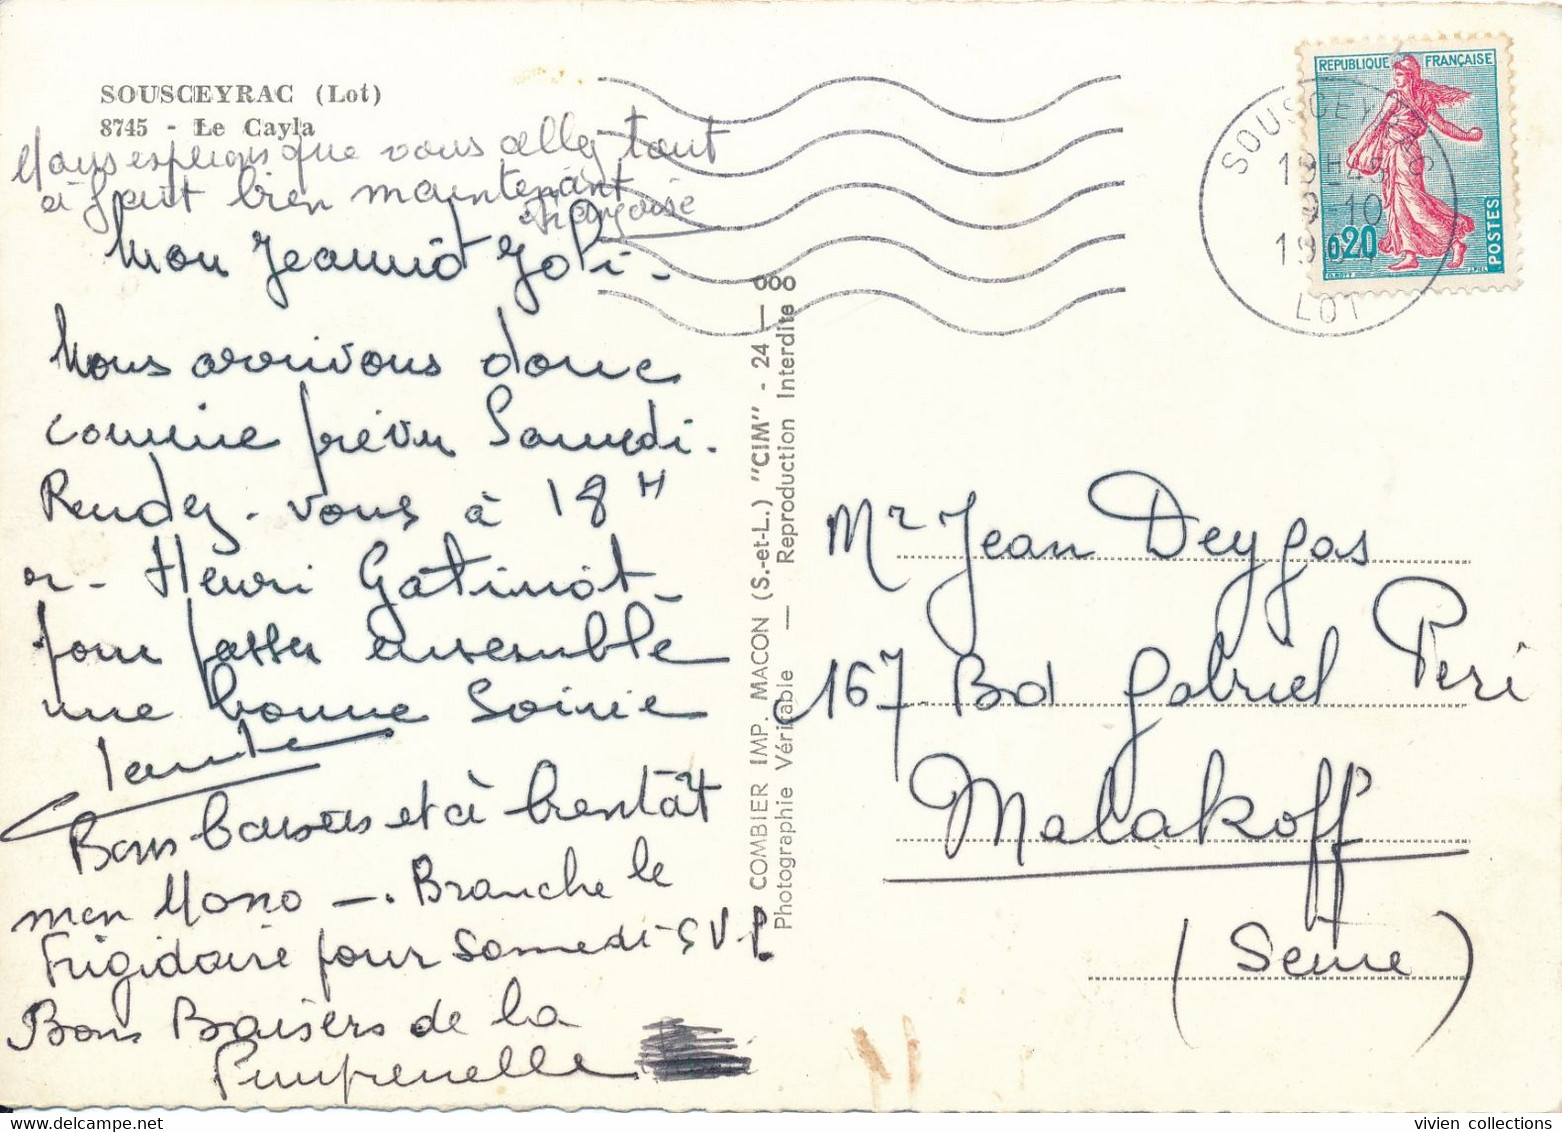 SOUSCEYRAC (Lot)
8745 - Le Cayla
Nous espérons que vous allez tout
à fait bien maintenant
Françoise
Mon Jeannot Joli -
Nous arrivons donc
comme prévu Samedi.
Rendez-vous à 18 H
r - Henri Gatinot -
pour passer ensemble
une bonne Soirée
Bons baisers et à bientôt
mon Nono —. Branche le
Frigidaire pour Samedi S V P
Bons Baisers de la
Pimprenelle
COMBIER IMP. MACON (S.-et-L.) "CIM" - 24 — 000
Photographie Véritable — Reproduction Interdite
REPUBLIQUE FRANÇAISE
0,20
POSTES
SOUSCEYRAC
19H45
9-10
LOT
Mr Jean Deygas
167 Bd Gabriel Peri
Malakoff
(Seine)
vivien collections